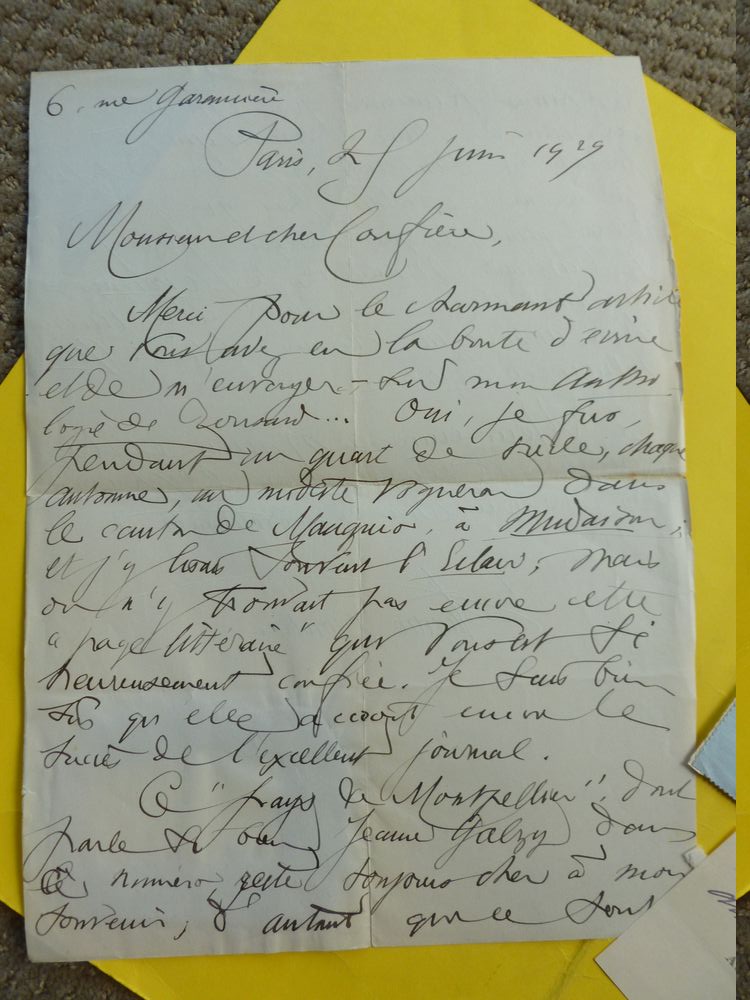 6, rue Garancière
Paris, 25 juin 1929
Monsieur et cher Confrère,
Merci pour le charmant article
que vous avez eu la bonté d'écrire
et de m'envoyer – sur mon Antho
logie de Ronsard... Oui, je fus,
pendant un quart de siècle, chaque
automne, un modeste vigneron dans
le canton de Mauguio, à Mudaison,
et j'y lisais souvent l'Eclair, mais
on n'y trouvait pas encore cette
"page littéraire" qui vous est si
heureusement confiée. Je suis bien
sûr qu'elle accroît encore le
succès de l'excellent journal.
Ce "pays de Montpellier", dont
parle si bien Jeanne Galzy dans
ce numéro, reste toujours cher à mon
souvenir, d'autant que ce sont